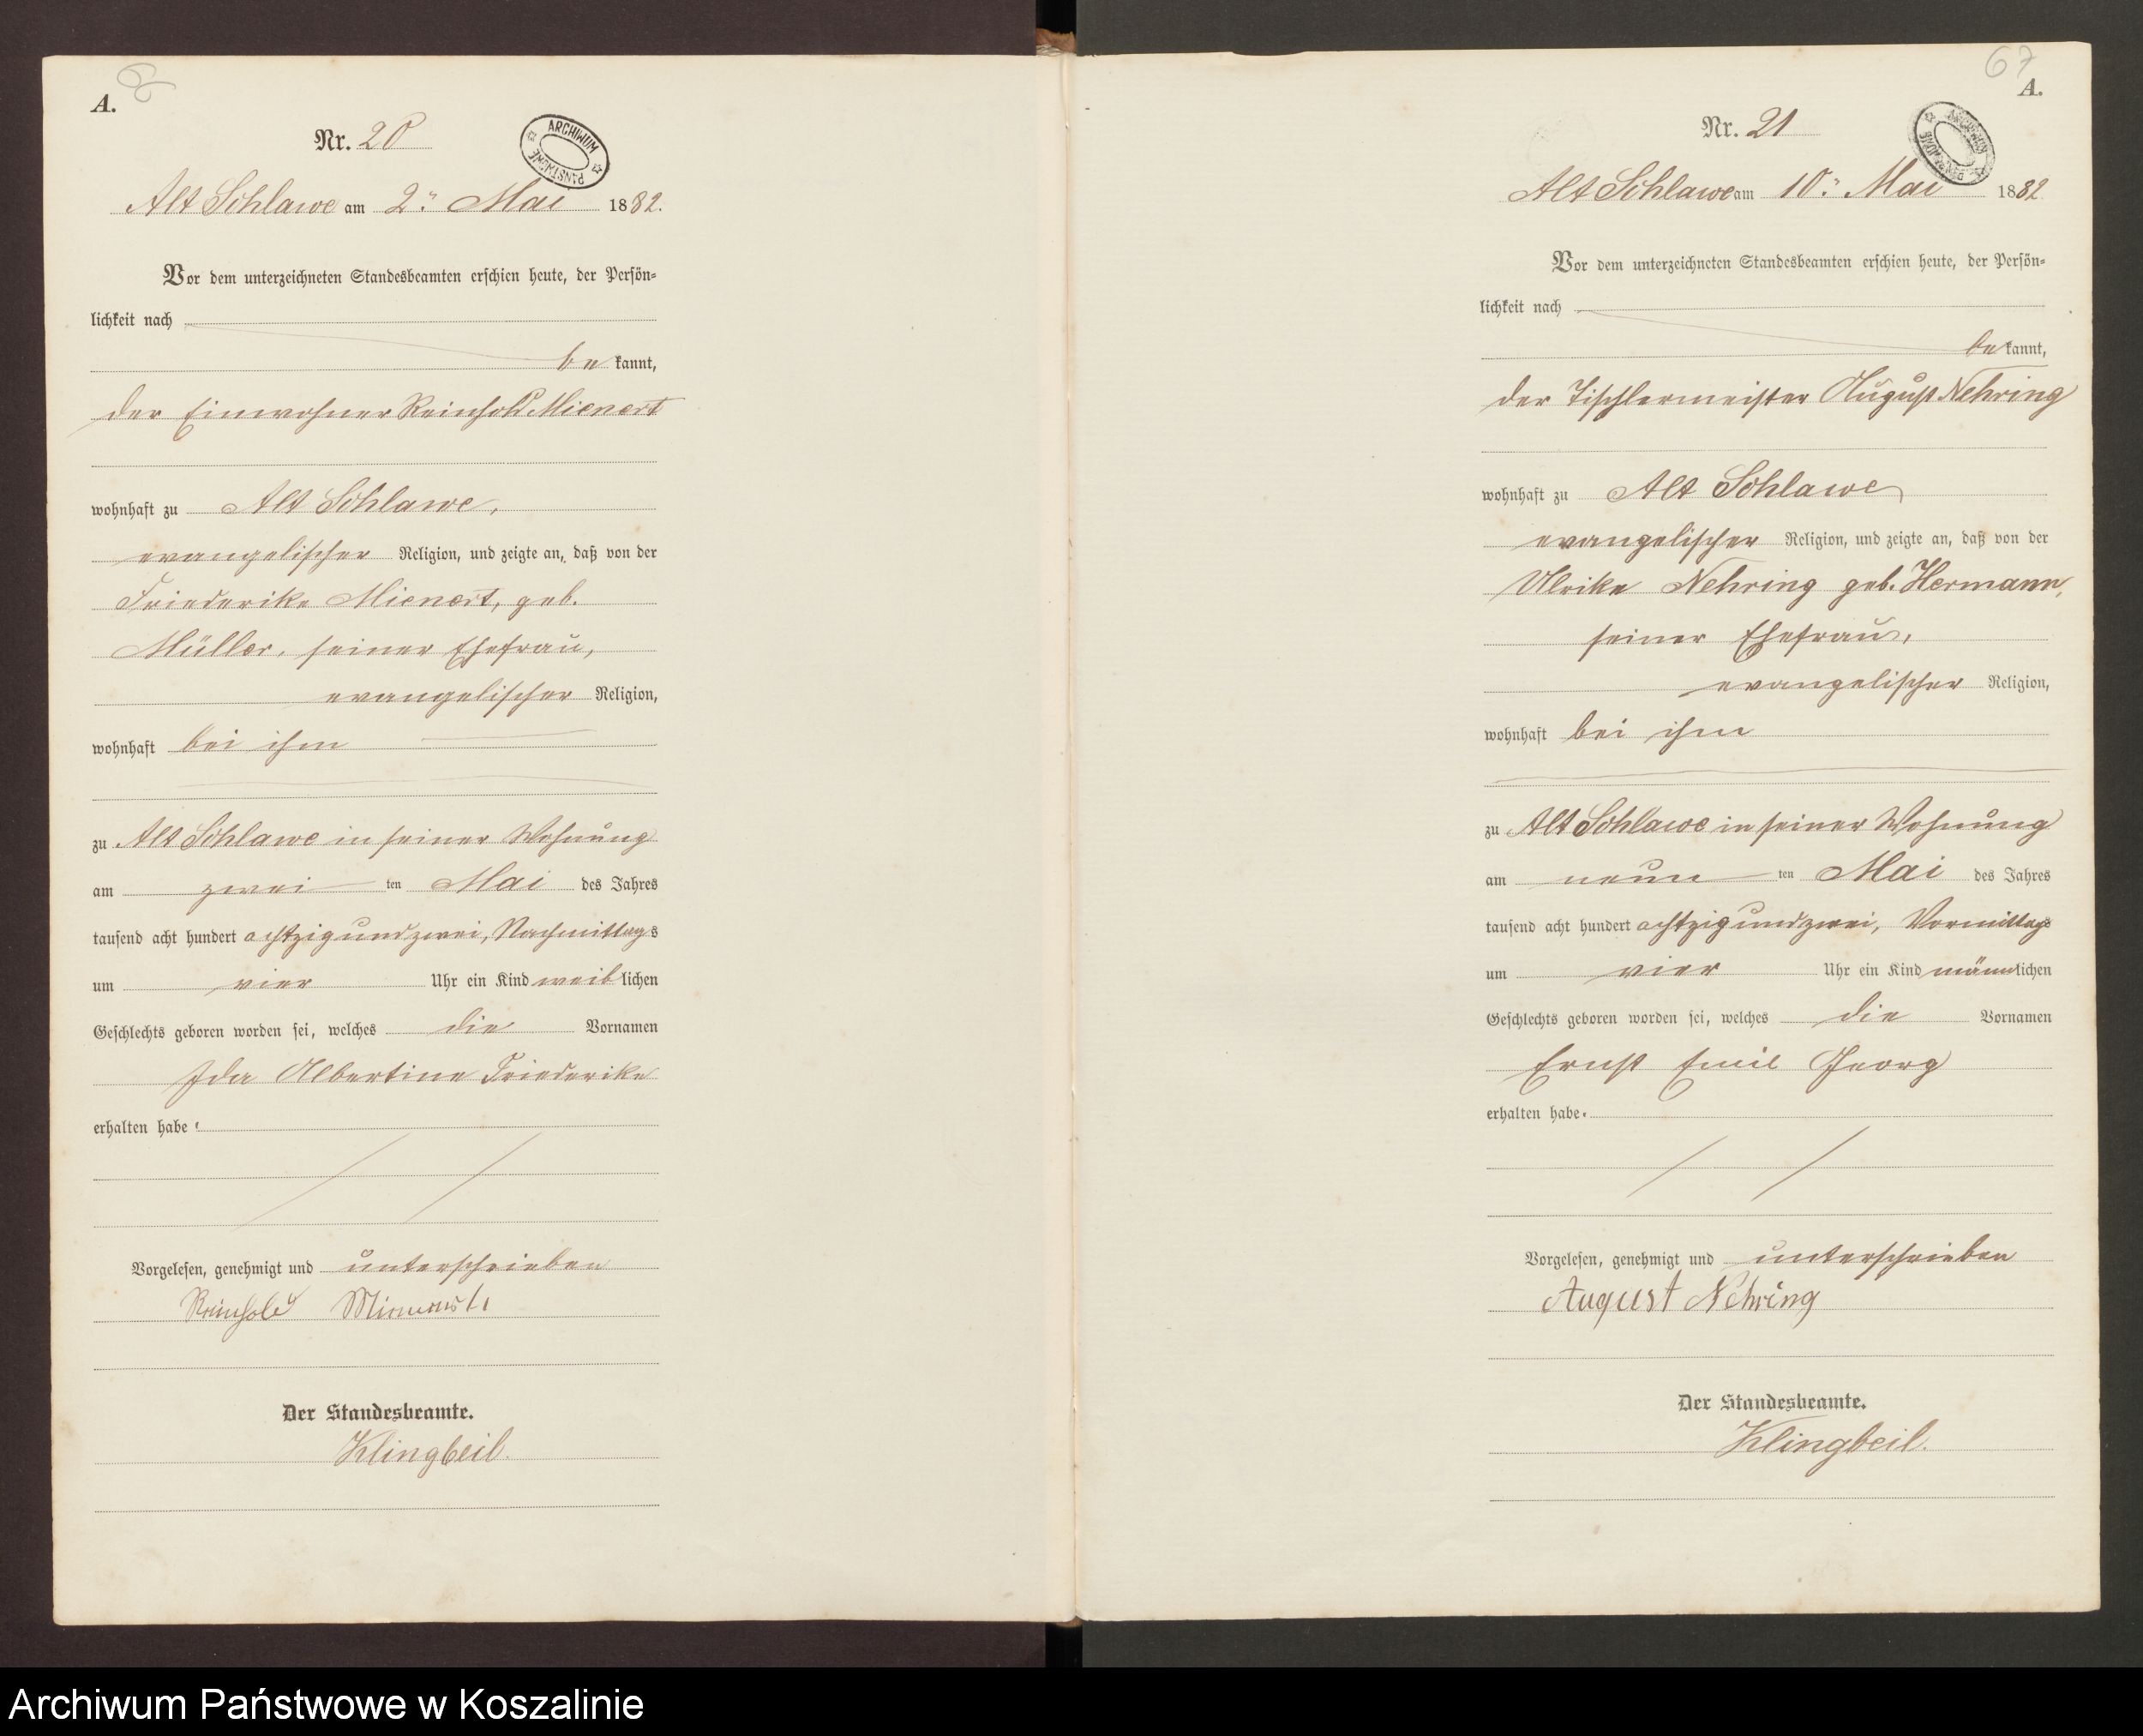 A.
Nr. 20
ARCHIWUM PAŃSTWOWE
Alt Schlawe am 2ⁿ Mai 1882.
Vor dem unterzeichneten Standesbeamten erschien heute, der Persön-
lichkeit nach
be kannt,
der Einwohner Reinhold Mienert
wohnhaft zu Alt Schlawe,
evangelischer Religion, und zeigte an, daß von der
Friederike Mienert, geb.
Müller, seiner Ehefrau,
evangelischer Religion,
wohnhaft bei ihm
zu Alt Schlawe in seiner Wohnung
am zwei ten Mai des Jahres
tausend acht hundert achtzig und zwei, Nachmittags
um vier Uhr ein Kind weiblichen
Geschlechts geboren worden sei, welches die Vornamen
Ida Albertine Friederike
erhalten habe.
Vorgelesen, genehmigt und unterschrieben
Reinhold Mienert
Der Standesbeamte.
Klingbeil.
67
A.
Nr. 21
ARCHIWUM PAŃSTWOWE
Alt Schlawe am 10ⁿ Mai 1882
Vor dem unterzeichneten Standesbeamten erschien heute, der Persön-
lichkeit nach
be kannt,
der Tischlermeister August Nehring
wohnhaft zu Alt Schlawe,
evangelischer Religion, und zeigte an, daß von der
Ulrike Nehring geb. Hermann,
seiner Ehefrau,
evangelischer Religion,
wohnhaft bei ihm
zu Alt Schlawe in seiner Wohnung
am neun ten Mai des Jahres
tausend acht hundert achtzig und zwei, Vormittags
um vier Uhr ein Kind männlichen
Geschlechts geboren worden sei, welches die Vornamen
Ernst Emil Georg
erhalten habe.
Vorgelesen, genehmigt und unterschrieben
August Nehring
Der Standesbeamte.
Klingbeil.
Archiwum Państwowe w Koszalinie